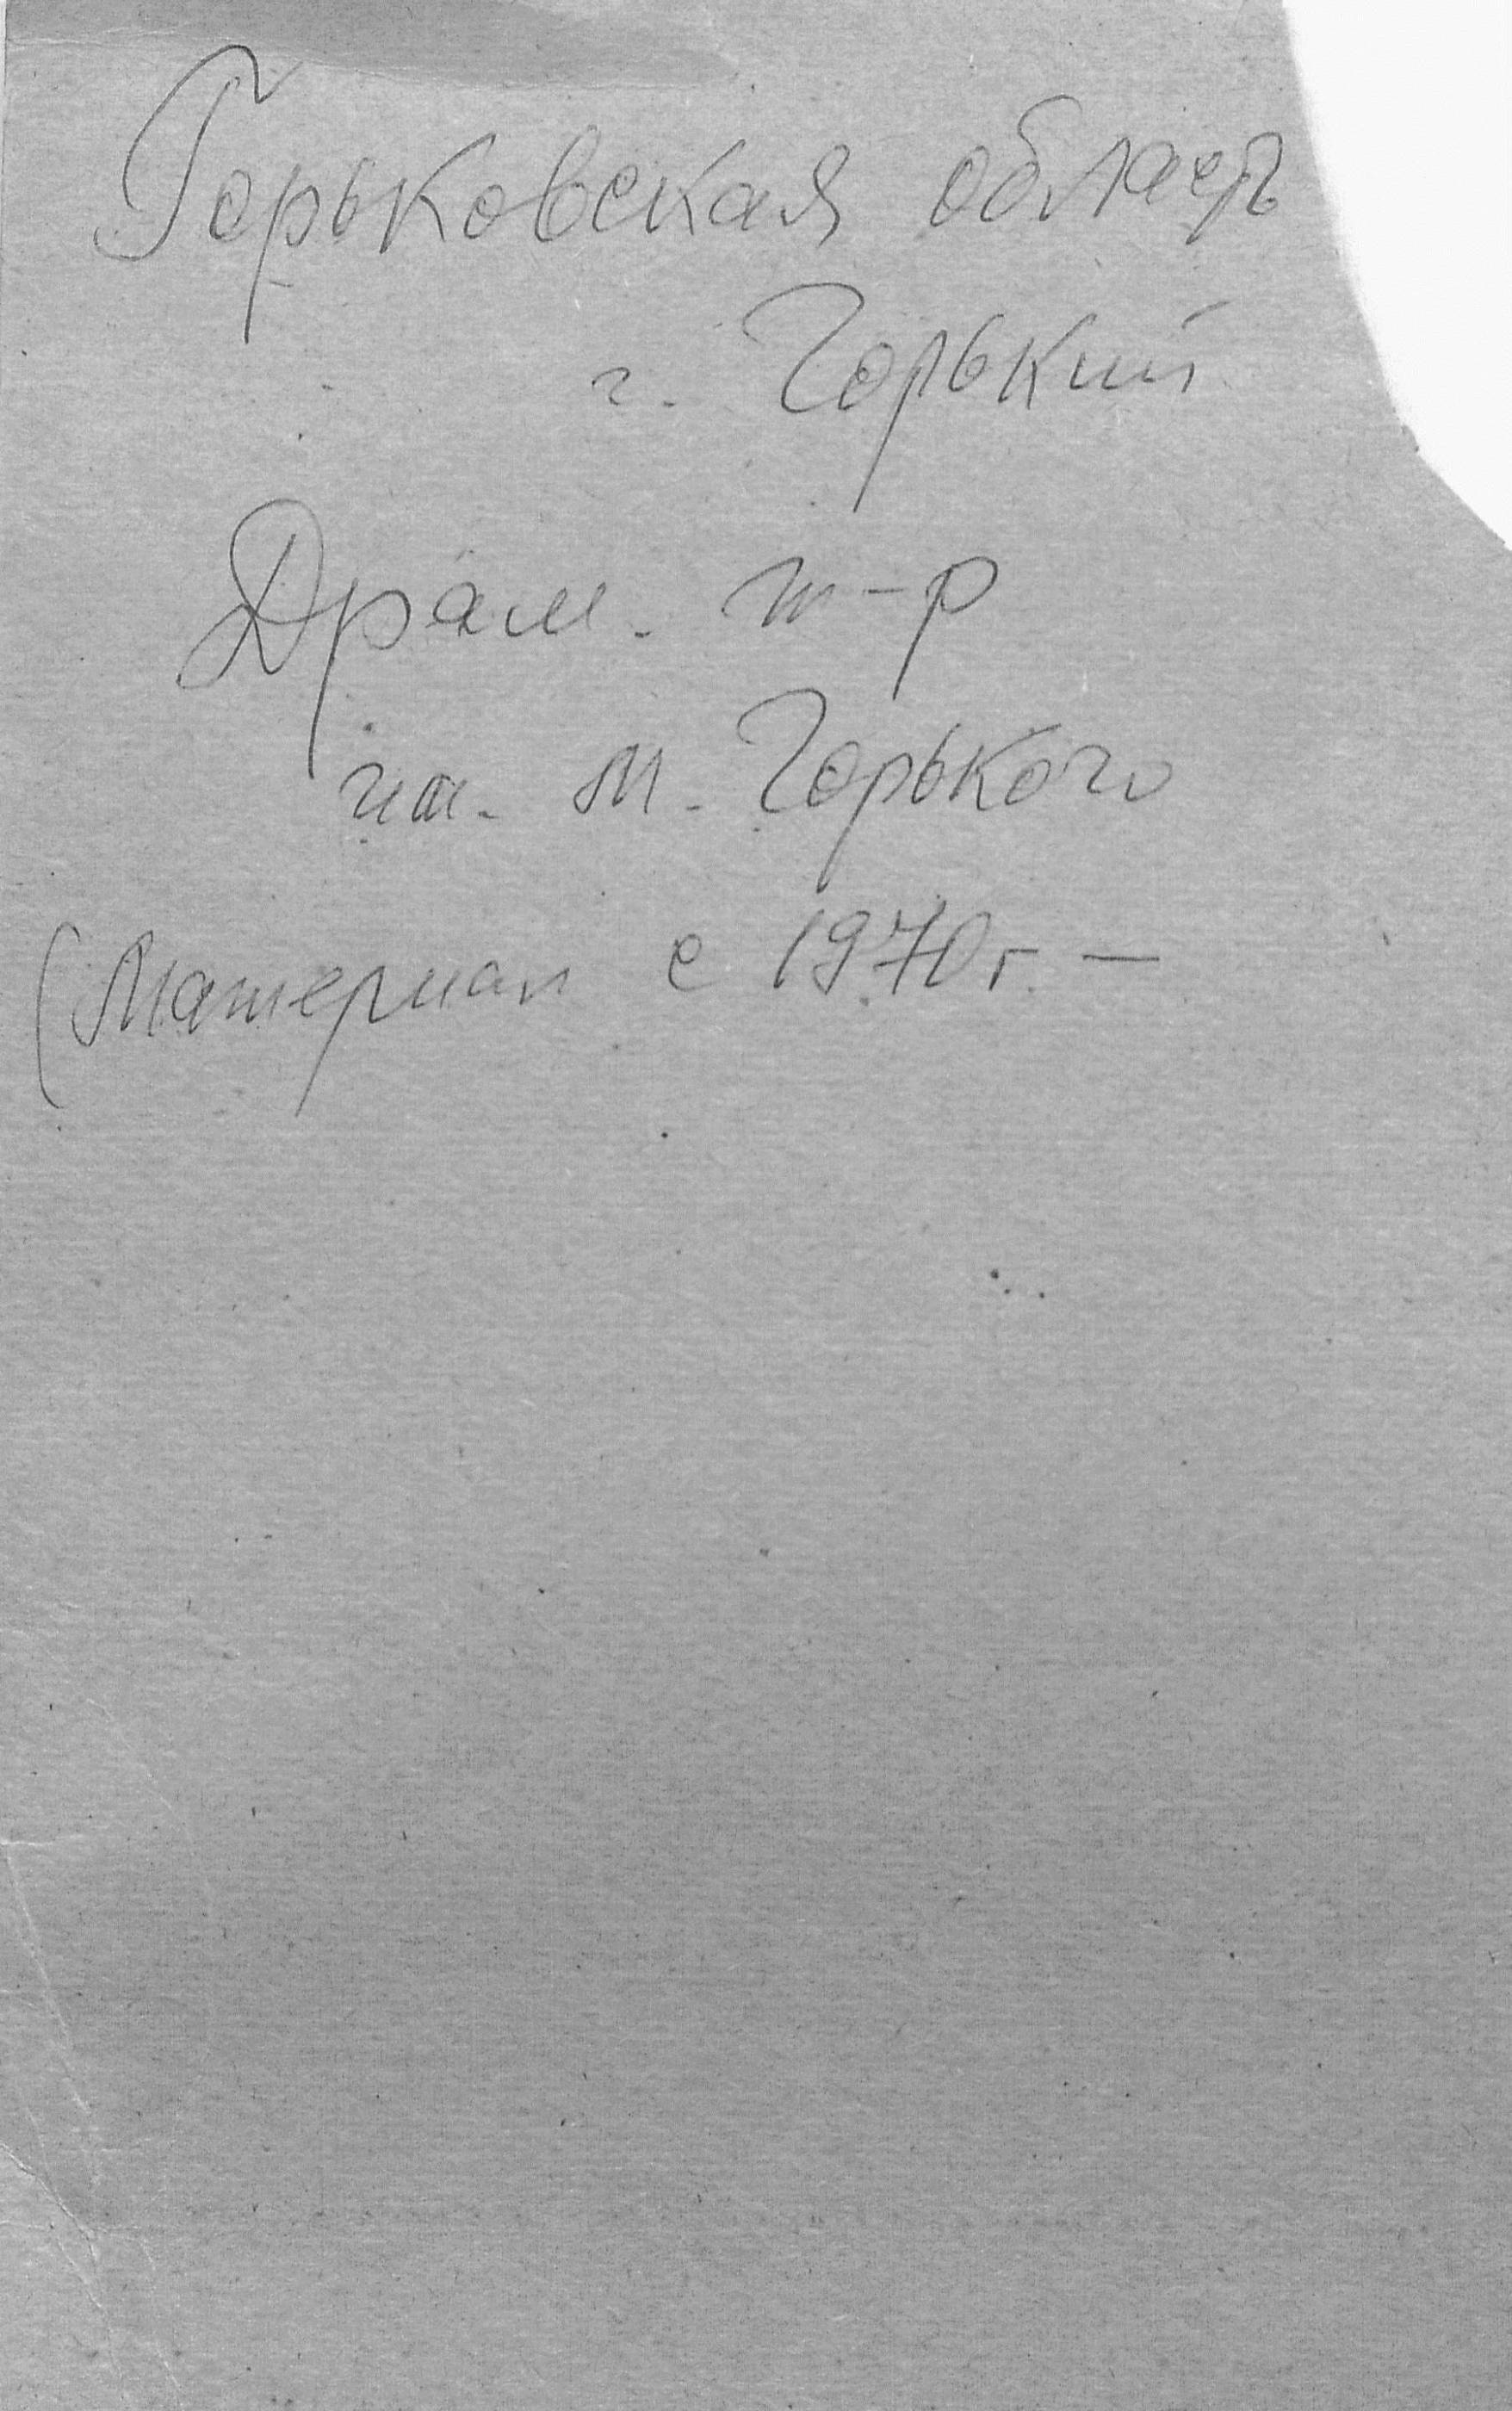 Горьковская область
г. Горький
Драм. т-р
им. М. Горького
(Материал с 1970г. —